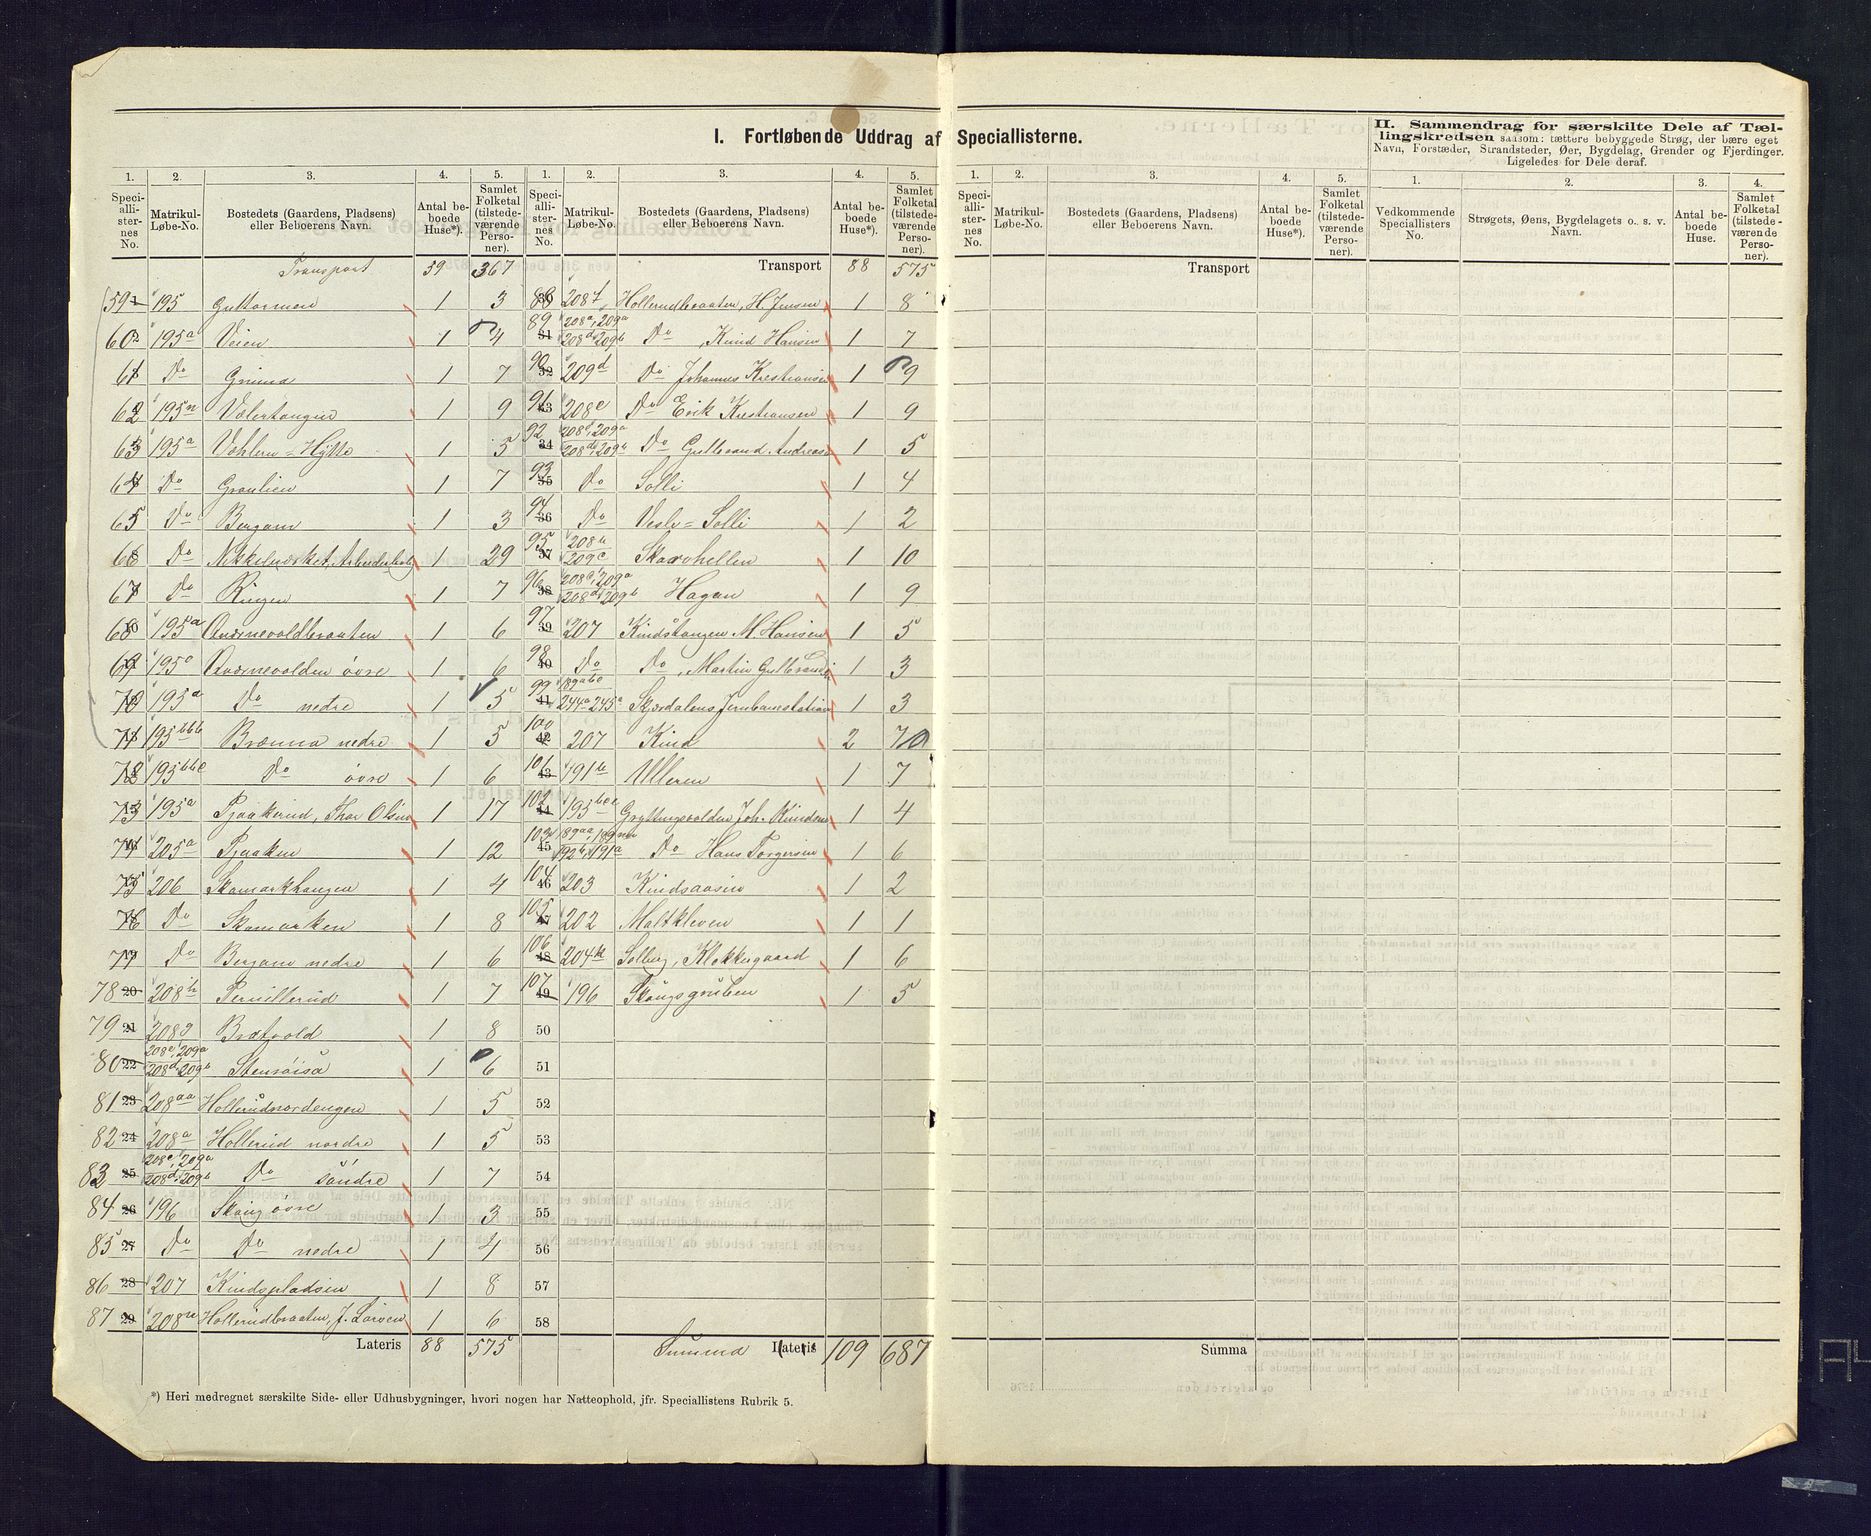 I. Fortløbende Uddrag af Speciallisterne.
II. Sammendrag for særskilte Dele af Tæl-
lingskredsen saasom: tættere bebyggede Strøg, der bære eget
Navn, Forstæder, Strandsteder, Øer, Bygdelag, Grender og Fjerdinger.
Ligeledes for Dele deraf.
1. 2. 3. 4. 5.
Speciallisternes No. Matrikul-Løbe-No. Bostedets (Gaardens, Pladsens) eller Beboerens Navn. Antal beboede Huse*). Samlet Folketal (tilstedeværende Personer).
Transport 59 367
59 195 Guttormen 1 3
60 195a Veien 1 4
61 Do Grinna 1 7
62 195n Vælertangen 1 9
63 195a Væhlern=Hytte 1 5
64 Do Granlien 1 7
65 Do Bergann 1 3
66 Do Nikkelværket, Arbeiderbolig 1 29
67 Do Ringen 1 7
68 195a Qværnevoldbraaten 1 6
69 195a Qværnevolden övre 1 6
70 195a Do nedre 1 5
71 195bbb Brænna nedre 1 5
72 195bbc Do övre 1 6
73 195a Tjaakerud, Thor Olsen 1 17
74 205a Tjaaken 1 12
75 206 Skamarkhaugen 1 4
76 Do Skamarken 1 8
77 Do Bergann nedre 1 6
78 208h Pernillerud 1 7
79 208g Brætvold 1 8
80 208c, 209a 208d, 209b Stensöisa 1 6
81 208aa Hollerudnordengen 1 5
82 208a Hollerud nordre 1 5
83 208c, 209a 208d, 209b Do söndre 1 7
84 196 Skaug övre 1 3
85 Do Do nedre 1 4
86 207 Kindspladsen 1 8
87 208n Hollerudbraaten, J. Larsen 1 6
Lateris 88 575
1. 2. 3. 4. 5.
Speciallisternes No. Matrikul-Løbe-No. Bostedets (Gaardens, Pladsens) eller Beboerens Navn. Antal beboede Huse*). Samlet Folketal (tilstedeværende Personer).
Transport 88 575
88 208f Hollerudbraaten, H. Jensen 1 8
89 208a, 209a 208d, 209b Do, Knud Hansen 1 7
90 209d Do Johannes Kristiansen 1 9
91 208e Do Erik Kristiansen 1 9
92 208c, 209a 208d, 209b Do Gulbrand Andreas 1 5
93 Do Solli 1 4
94 Do Vesle=Solli 1 2
95 208b 209c Skarvhellen 1 10
96 208c, 209a 208d, 209b Hagan 1 9
97 207 Kindstangen M. Hansen 1 5
98 Do Do, Martin Gulbrands 1 3
99 189abc 244a 245a Skjærdalens Jernbanestation 1 3
100 207 Kind 2 10
101 191b Ulleren 1 7
102 195bcc Gryttingsvolden Joh. Knudsen 1 4
103 189aa, 192b, 191a Do Hans Torgersen 1 6
104 203 Kindsaasen 1 2
105 202 Maltkleven 1 1
106 204k Solberg, Klokkergaard 1 6
107 196 Skaugsgruben 1 5
50
51
52
53
54
55
56
57
58
Summa Lateris 109 687
*) Heri medregnet særskilte Side- eller Udhusbygninger, hvori nogen har Natteophold, jfr. Speciallistens Rubrik 5.
1. 2. 3. 4. 5.
Speciallisternes No. Matrikul-Løbe-No. Bostedets (Gaardens, Pladsens) eller Beboerens Navn. Antal beboede Huse*). Samlet Folketal (tilstedeværende Personer).
Transport
Summa
1. 2. 3. 4.
Vedkommende Speciallisters No. Strøgets, Øens, Bygdelagets o. s. v. Navn. Antal beboede Huse. Samlet Folketal (tilstedeværende Personer).